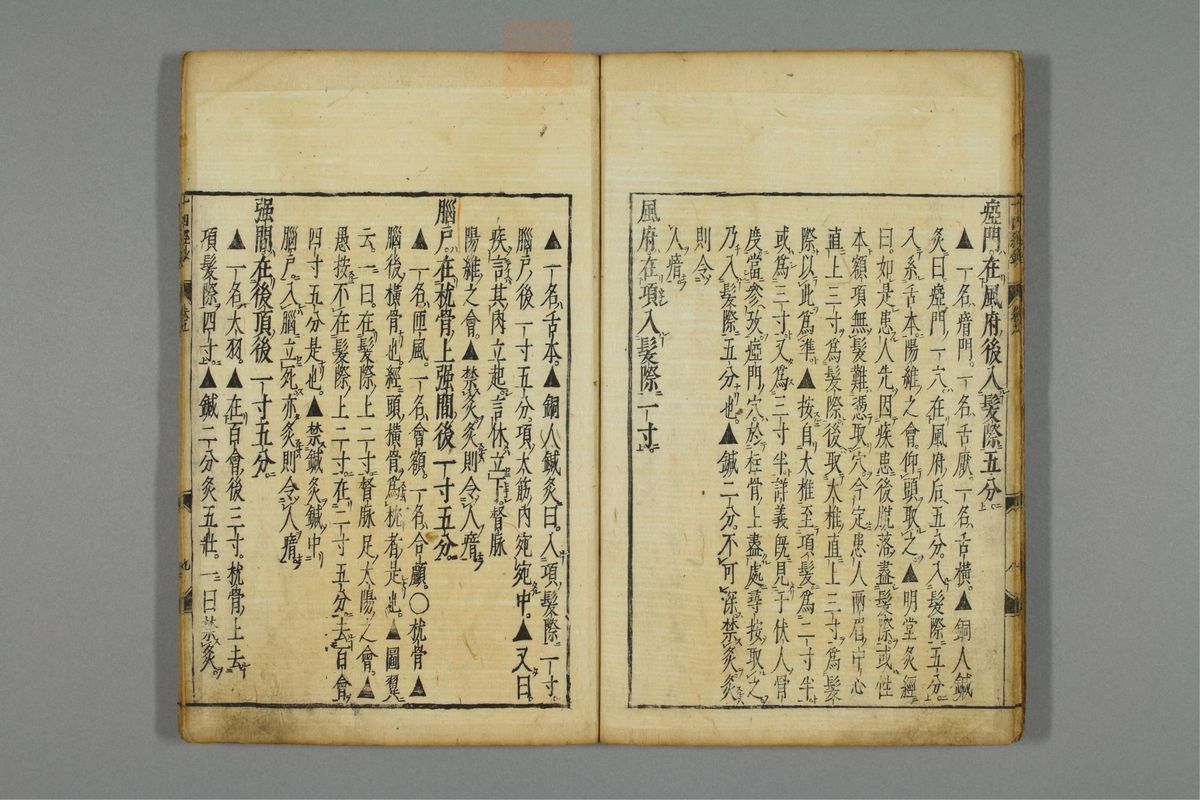 瘂門在風府後入髮際五分
▲一名瘖門一名舌厭一名舌橫▲銅人鍼
灸曰瘂門一穴在風府后五分入髮際五分
入系舌本陽維之會仰頭取之▲明堂灸經
曰如是患人先因疾患後脫落盡髮際或性
本額項無髮難憑取穴今定患人兩眉中心
直上三寸為髮際後取大椎直上三寸為髮
際以此為準▲按自大椎至項髮為二寸半
或為三寸又為三寸半詳義既見于伏人骨
度當參攷瘂門穴於柱骨上盡處尋按取之
乃入髮際五分也▲鍼二分不可深禁灸灸
則令
人瘖
風府在項入髮際一寸
▲一名舌本▲銅人鍼灸曰入項髮際一寸
腦戶後一寸五分項大筋內宛宛中▲又曰
疾言其肉立起言休立下督脉
陽維之會▲禁灸灸則令人瘖
腦戶在枕骨上强間後一寸五分
▲一名匣風一名會額一名合顱○枕骨▲
腦後橫骨也經頭橫骨為枕者是也▲圖翼
云一曰在髮際上二寸督脉足太陽之會▲
愚按不在髮際上二寸在二寸五分去百會
四寸五分是也▲禁鍼灸鍼中
腦戶入腦立死亦灸則令人瘖
强間在後頂後一寸五分
▲一名大羽▲在百會後三寸枕骨上去
項髮際四寸▲鍼二分灸五壯一曰禁灸
九